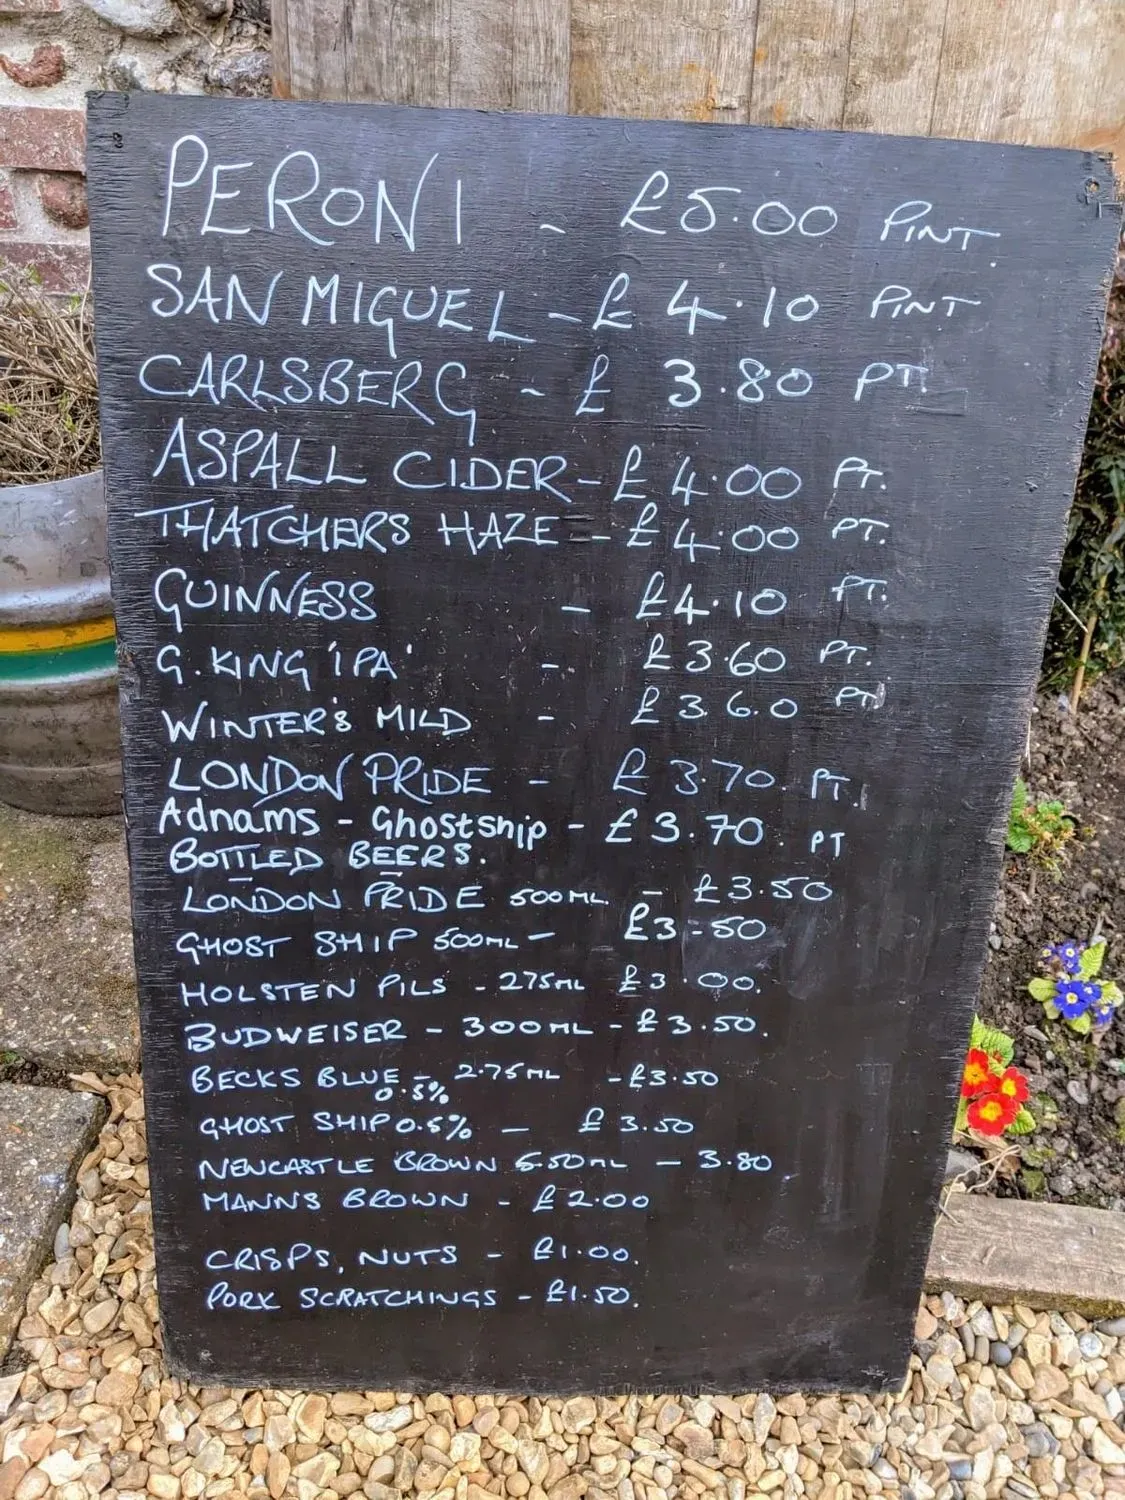 PERONI - £5.00 PINT.
SAN MIGUEL - £ 4.10 PINT
CARLSBERG - £ 3.80 PT.
ASPALL CIDER - £ 4.00 PT.
THATCHERS HAZE - £ 4.00 PT.
GUINNESS - £4.10 PT.
G. KING 'IPA' - £3.60 PT.
WINTER'S MILD - £ 3.6.0 PT
LONDON PRIDE - £ 3.70. PT.
Adnams - Ghostship - £ 3.70. PT
BOTTLED BEERS.
LONDON PRIDE 500ML. - £3.50
GHOST SHIP 500ML - £3-50
HOLSTEN PILS - 275ML £3.00.
BUDWEISER - 300ML - £3.50.
BECKS BLUE - 275ML - £3.50
0.5%
GHOST SHIP 0.5% - £ 3.50
NEWCASTLE BROWN 550ML - 3.80
MANNS BROWN - £2.00
CRISPS, NUTS - £1.00.
PORK SCRATCHINGS - £1.50.